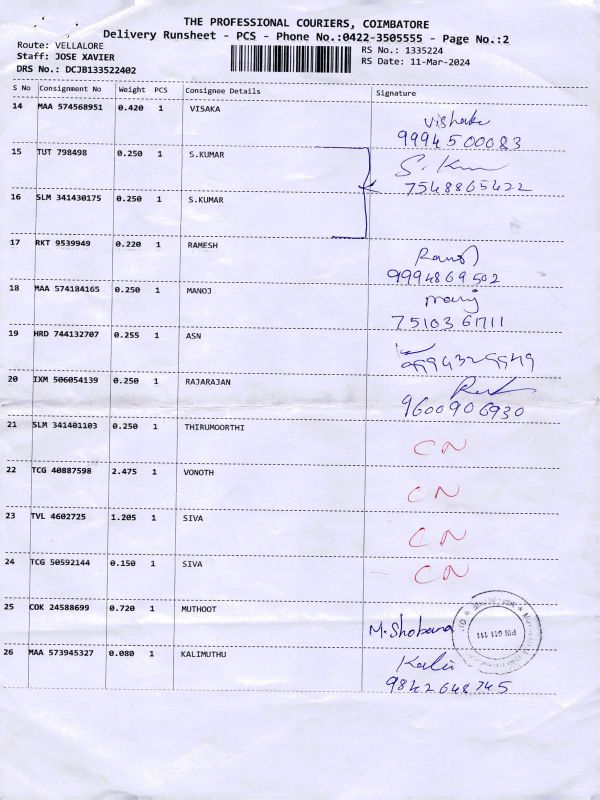 THE PROFESSIONAL COURIERS, COIMBATORE
Delivery Runsheet - PCS - Phone No.:0422-3505555 - Page No.:2
Route: VELLALORE
Staff: JOSE XAVIER
DRS No.: DCJB133522402
RS No.: 1335224
RS Date: 11-Mar-2024
S No Consignment No Weight PCS Consignee Details Signature
14 MAA 574568951 0.420 1 VISAKA
Vishaka
9994500083
15 TUT 798498 0.250 1 S.KUMAR
S. Kum
7548865422
16 SLM 341430175 0.250 1 S.KUMAR
17 RKT 9539949 0.220 1 RAMESH
9994869502
18 MAA 574184165 0.250 1 MANOJ
manoj
7510361711
19 HRD 744132707 0.255 1 ASN
9994329949
20 IXM 506054139 0.250 1 RAJARAJAN
9600906930
21 SLM 341401103 0.250 1 THIRUMOORTHI
CN
22 TCG 40887598 2.475 1 VONOTH
CN
23 TVL 4602725 1.205 1 SIVA
CN
24 TCG 50592144 0.150 1 SIVA
CN
25 COK 24588699 0.720 1 MUTHOOT
M. Shobana
PIN 641 111
26 MAA 573945327 0.080 1 KALIMUTHU
Kali
9842648745